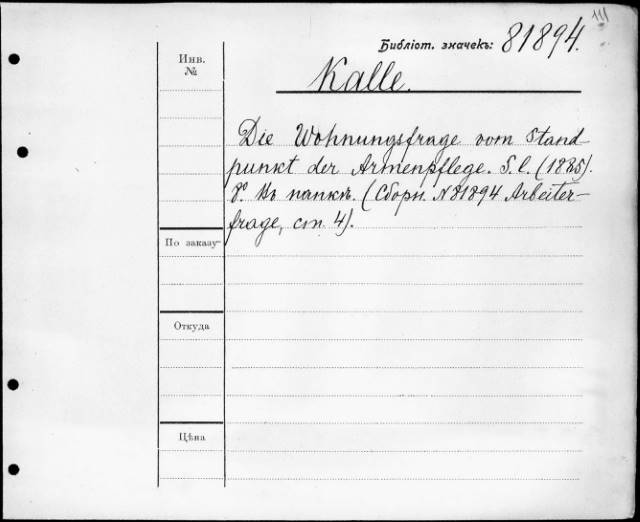 Библіот. значекъ: 81894.
Инв.
№
Kalle.
Die Wohnungsfrage vom Stand-
punkt der Armenpflege. S. l. (1885).
8º. Въ папкѣ. (Сборн. N 81894 Arbeiter-
frage, ст. 4).
По заказу
Откуда
Цѣна